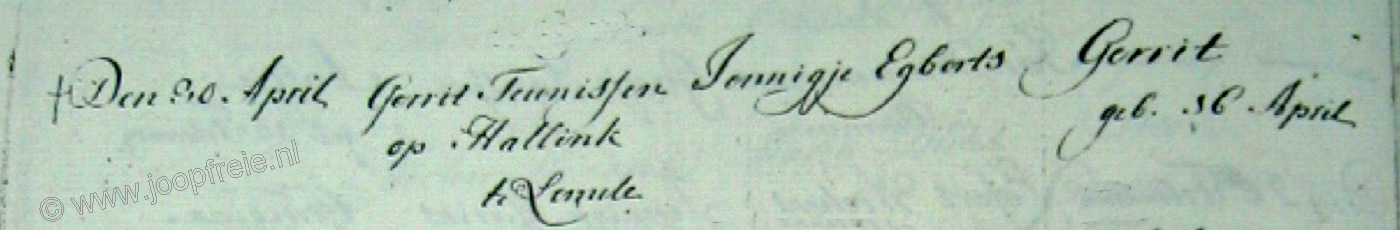 † Den 20. April Gerrit Teunissen Jennigje Egberts Gerrit
op Hallink geb. 16 April
te Lemele
© www.joopfreie.nl